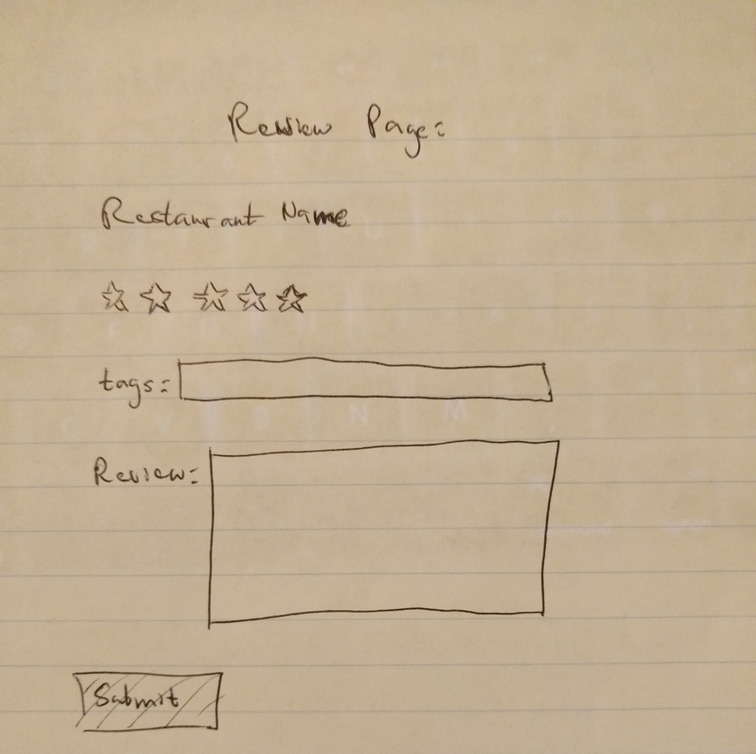 Review Page:
Restaurant Name
tags:
Review:
Submit